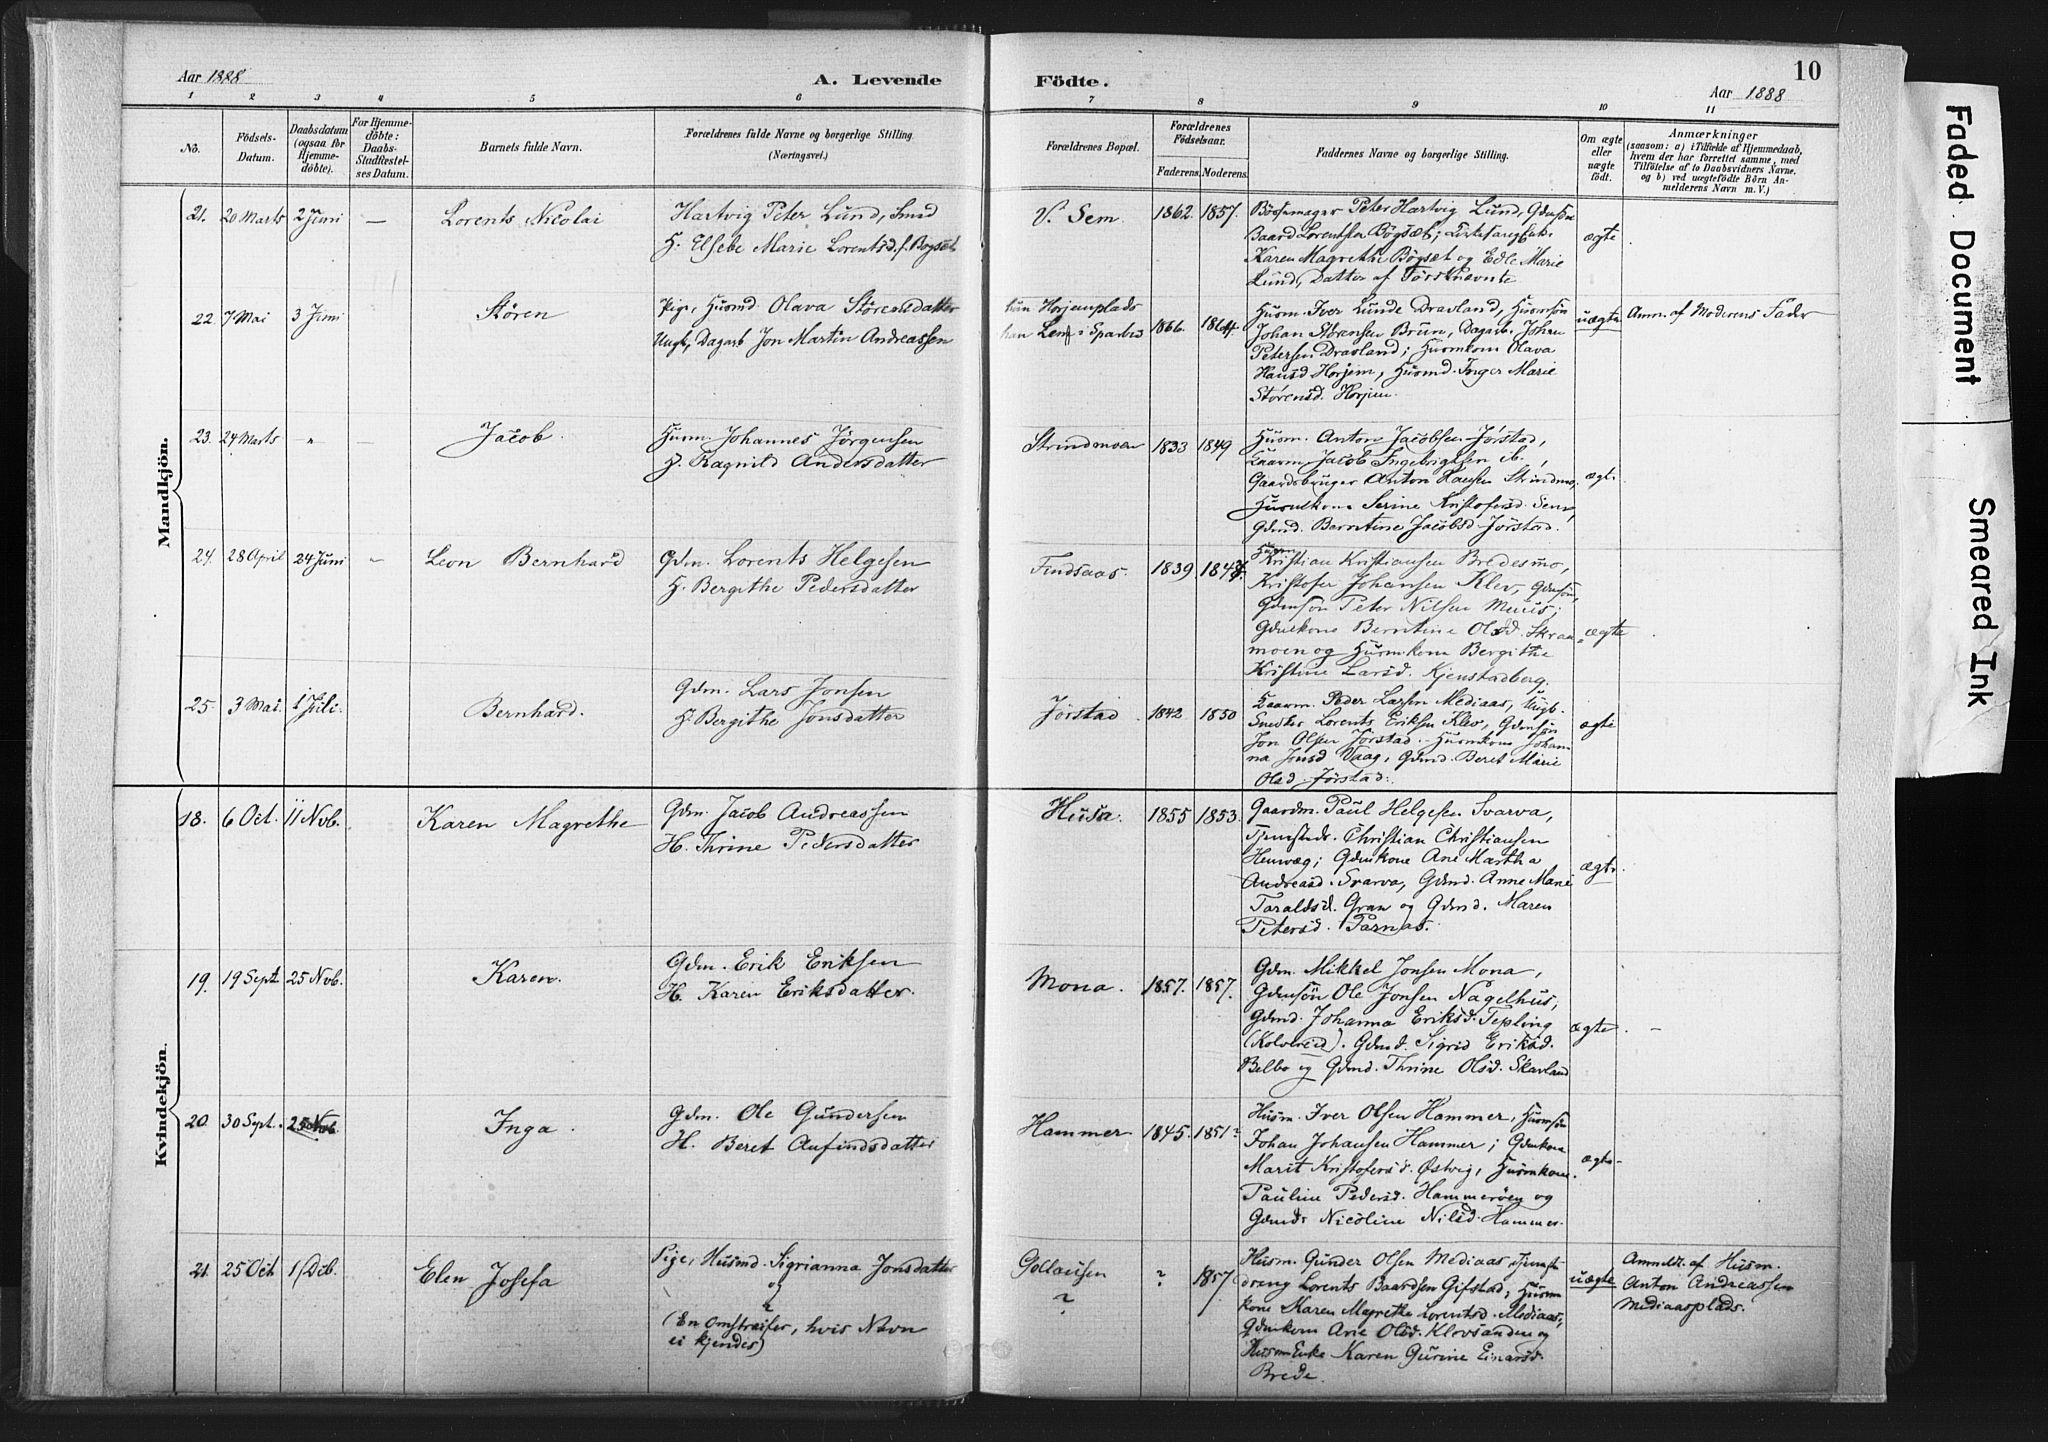 Aar 1888
A. Levende Födte.
10
Aar 1888
1 2 3 4 5 6 7 8 9 10 11
No.
Födsels-
Datum.
Daabsdatum
(ogsaa for
Hjemme-
döbte).
For Hjemme-
döbte:
Daabs-
Stadfæstel-
ses Datum.
Barnets fulde Navn.
Forældrenes fulde Navne og borgerlige Stilling.
(Næringsvei.)
Forældrenes Bopæl.
Forældrenes
Födselsaar.
Faderens. Moderens.
Faddernes Navne og borgerlige Stilling.
Om ægte
eller
uægte
født.
Anmærkninger
(saasom: a) i Tilfælde af Hjemmedaab,
hvem der har forrettet samme, med
Tilföielse af to Daabsvidners Navne,
og b) ved uægtefödte Börn An-
melderens Navn m. V.)
Mandkjön.
21. 20 Marts 2 Juni — Lorents Nicolai
Hartvig Peter Lund, Smed
H. Elsebe Marie Lorentsd. f. Bogsæt
V. Sem. 1862. 1857.
Bössemager Peter Hartvig Lund, Gdmsön
Baard Lorentsen Bögsæt;
Karen Magrethe Bögset og Edle Marie
Lund, Datter af Förstnævnte
ægte
22. 7 Mai 3 Juni Stören
Pige, Husmd Olava Störensdatter
Ungk, Dagarb Jon Martin Andreassen
hun Horjemplads
han Lein i Sparbu
1866. 1864.
Husm. Iver Lunde Dravland, Husmsön
Johan Brun, Dagarb. Johan
Petersen Dravland; Husmkone Olava
Hansd Horjem, Husmd. Inger Marie
Störensd. Horjem.
uægte Anm. af Moderens Fader
23. 24 Marts „ — Jacob.
Husm. Johannes Jörgensen
H. Ragnild Andersdatter
Strindmoen 1833 1849
Husm. Anton Jacobsen Jörstad,
Gaardm. Jacob Ingebrigtsen ib.,
Gaardsbruger Anton Hansen Strindmo,
Husmkone Serine Kristofersd. Sem,
Gdmd. Berntine Jacobsd Jörstad.
ægte
24. 28 April 24 Juni — Leon Bernhard
Gdm. Lorents Helgesen
H. Bergithe Pedersdatter
Finsaas. 1839 1847.
Husm.
Kristian Kristiansen Bredesmo,
Kristofer Johansen Klev, Gdmsön,
Gdmsön Peter Nilsen Muus;
Gdmkone Berntine Olsd. Skran-
moen og Husmkone Bergithe
Kristine Larsd. Kjenstadberg.
ægte
25. 3 Mai 1 Juli. Bernhard.
Gdm. Lars Jonsen
H. Bergithe Jonsdatter
Jörstad 1842 1850
Gaardm. Peder Larsen Mediaas, Ungk.
Snedker Lorents Eriksen Klev, Gdmsön
Jon Olsen Jörstad. Husmkone Johan-
na Jonsd Vaag, Gdmd. Beret Marie
Olsd. Jörstad.
ægte
Kvindekjön.
18. 6 Oct. 11 Nvb. Karen Magrethe
Gdm. Jacob Andreassen
H. Thrine Pedersdatter
Husa. 1855 1853.
Gaardm. Paul Helgesen Svarva,
Tjenestedr. Christian Christiansen
Gdmkone Ane Martha
Andreasd. Svarva, Gdmd. Anne Marie
Taraldsd. Gran og Gdmd. Maren
Petersd. Parnas.
ægte
19. 19 Sept. 25 Nvb. Karen.
Gdm. Erik Eriksen
H. Karen Eriksdatter.
Mona. 1857. 1857.
Gdm. Mikkel Jonsen Mona,
Gdmsön Ole Jonsen Nagelhus,
Gdmd. Johanna Eriksd. Tepling
(Kolvereid). Gdmd. Sigrid Eriksd.
Belbo og Gdmd. Thrine Olsd. Skavland
ægte –
20. 30 Sept. 25 Nvb. Inga.
Gdm. Ole Gundersen
H. Beret Anfindsdatter
Hammer 1845. 1851?
Husm. Iver Olsen Hammer, Husmsön
Johan Johansen Hammer; Gdmkone
Marit Kristofersd. Østvig, Husmkone
Pauline Pedersd. Hammeröen og
Gdmd. Nicoline Nilsd. Hammer.
ægte
21. 25 Oct. 1 Dcb. Elen Josefa
Pige, Husmd. Sigrianna Jonsdatter
og
?
(En Omstreifer, hvis Navn
ei kjendes)
Gollausen
?
? 1857.
Husm. Gunder Olsen Mediaas, Tjeneste-
dreng Lorents Baardsen Gifstad; Husm-
kone Karen Magrethe Lorentsd. Mediaas,
Gdmkone Ane Olsd. Klovsanden og
Husm Enke Karen Gurine Einarsd.
Brede.
uægte
Anmeldt af Husm.
Anton Andreassen
Mediaasplads.
Faded Document
Smeared Ink